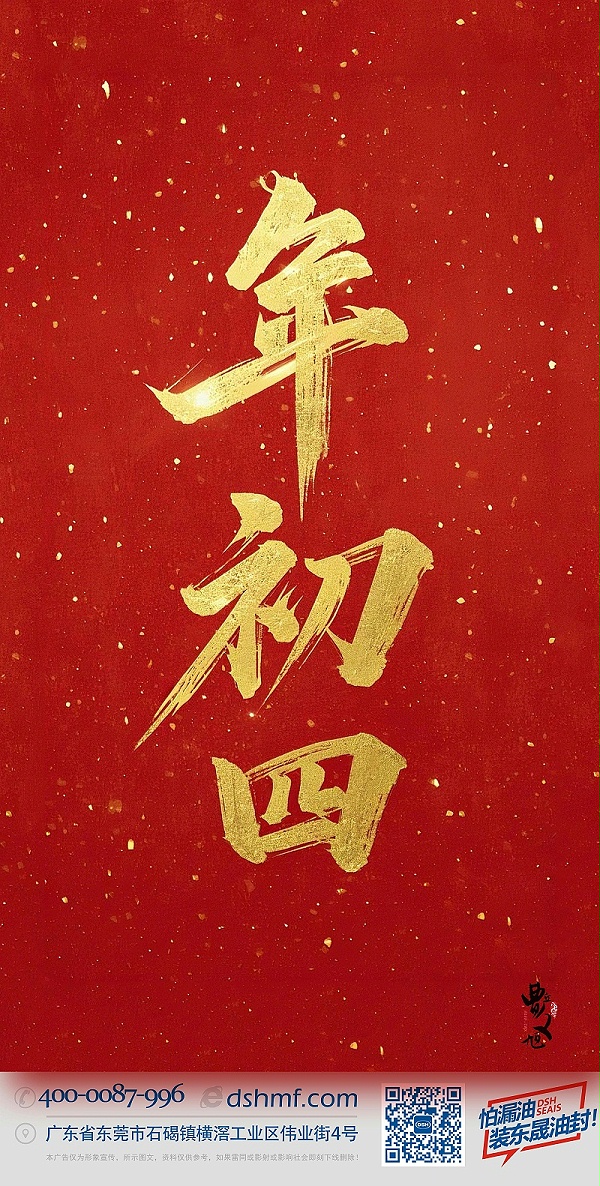 年
初
四
400-0087-996
dshmf.com
广东省东莞市石碣镇横滘工业区伟业街4号
本广告仅为形象宣传，所示图文，资料仅供参考，如果雷同或影射或影响社会即刻下线删除！
DSH
怕漏油
DSH
SEAIS
装东晟油封!